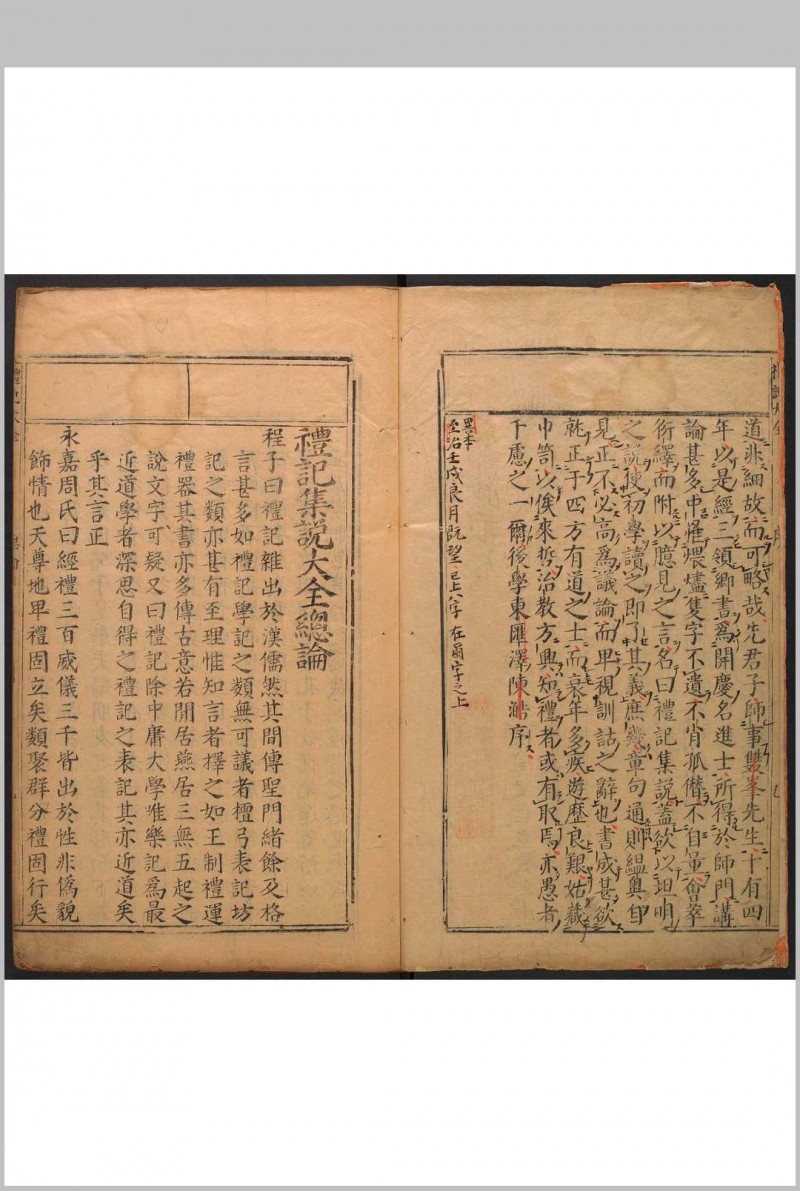 道非細故而可略哉先君子師事雙峯先生十有四
年以是經三領鄉書爲開慶名進士所得於師門講
論甚多中罹煨燼隻字不遺不肖孤僭不自量會萃
衍繹而附以臆見之言名曰禮記集說蓋欲以坦明
之說使初學讀之即了其義庶幾章句通則縕奧自
見正不必高爲議論而卑視訓詁之辭也書成甚欲
就正于四方有道之士而衰年多疾遊歷良艱姑藏
巾笥以俟來哲治教方興知禮者或有取焉亦愚者
千慮之一爾後學東匯澤陳澔序
異本
至治壬戌良月既望 已上八字 在爾字之上
禮記集說大全總論
程子曰禮記雜出於漢儒然其間傳聖門緒餘及格
言甚多如禮記學記之類無可議者檀弓表記坊
記之類亦甚有至理惟知言者擇之如王制禮運
禮器其書亦多傳古意若閒居燕居三無五起之
說文字可疑又曰禮記除中庸大學唯樂記爲最
近道學者深思自得之禮記之表記其亦近道矣
乎其言正
永嘉周氏曰經禮三百威儀三千皆出於性非僞貌
飾情也天尊地卑禮固立矣類聚群分禮固行矣